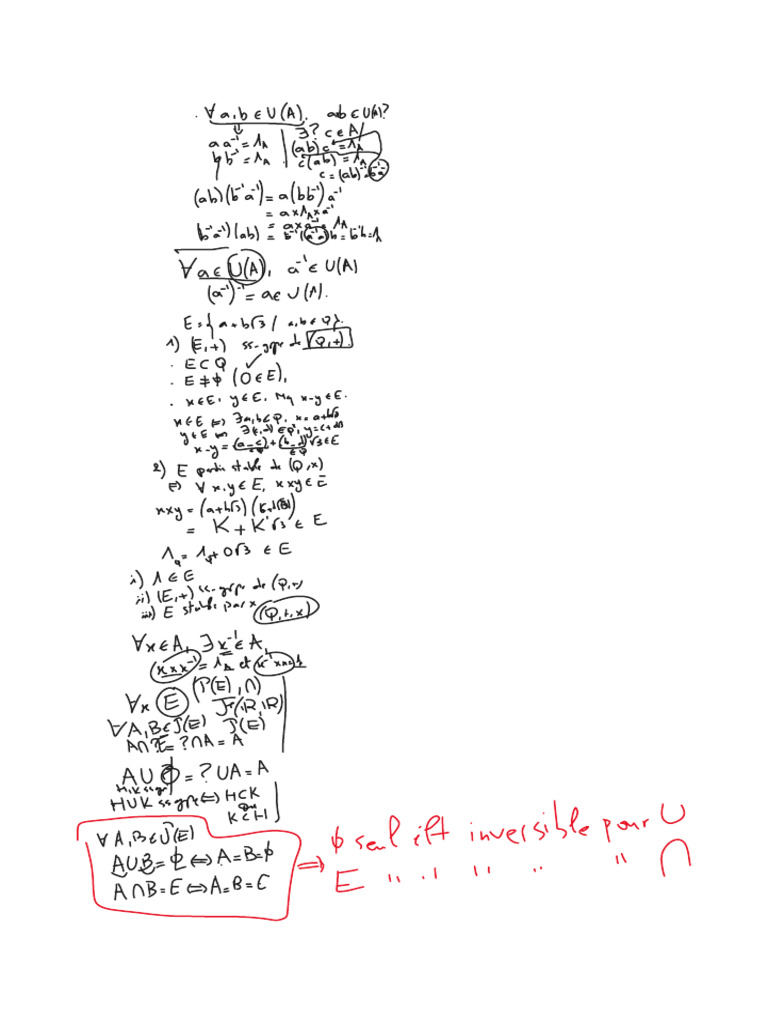 . ∀ a,b ∈ U(A), ab ∈ U(A)?
⇓ ∃? c ∈ A/
a a⁻¹ = 1_A (ab) c = 1_A
b b⁻¹ = 1_A c(ab) = 1_A
c = (ab)⁻¹ = b⁻¹a⁻¹
(ab)(b⁻¹a⁻¹) = a(bb⁻¹)a⁻¹
= a × 1_A × a⁻¹
= a × a⁻¹ = 1_A
(b⁻¹a⁻¹)(ab) = b⁻¹(a⁻¹a)b = b⁻¹b = 1
∀ a ∈ U(A), a⁻¹ ∈ U(A)
(a⁻¹)⁻¹ = a ∈ U(A).
E = { a + b√3 / a,b ∈ Q}.
1) (E,+) ss-grpe de (Q,+).
. E ⊂ Q
. E ≠ ϕ (0 ∈ E),
. x ∈ E, y ∈ E, Mq x-y ∈ E.
x ∈ E ⇔ ∃ a,b ∈ Q, x = a+b√3
y ∈ E ⇔ ∃ (c,d) ∈ Q², y = c+d√3
x-y = (a-c) + (b-d)√3 ∈ E
∈Q ∈Q
2) E partie stable de (Q,x)
⇔ ∀ x,y ∈ E, x×y ∈ E
x×y = (a+b√3)(c+d√3)
= K + K'√3 ∈ E
1_Q = 1_Q + 0√3 ∈ E
i) 1 ∈ E
ii) (E,+) ss-grpe de (Q,+)
iii) E stable par x (Q,+,x)
∀x ∈ A, ∃ x⁻¹ ∈ A,
x×x⁻¹ = 1_A et x⁻¹×x = 1
(P(E), ∩)
∀x E F(R,R)
∀ A,B ∈ P(E) P(E)
A∩E = ? ∩A = A
A ∪ ϕ = ? ∪A = A
H,K ss gr
H∪K ss grpe ⇔ H⊂K
ou
K⊂H
∀ A,B ∈ P(E)
A∪B = ϕ ⇔ A=B=ϕ
A∩B = E ⇔ A=B=E
⇒ ϕ seul élt inversible pour ∪
E " " " " " ∩